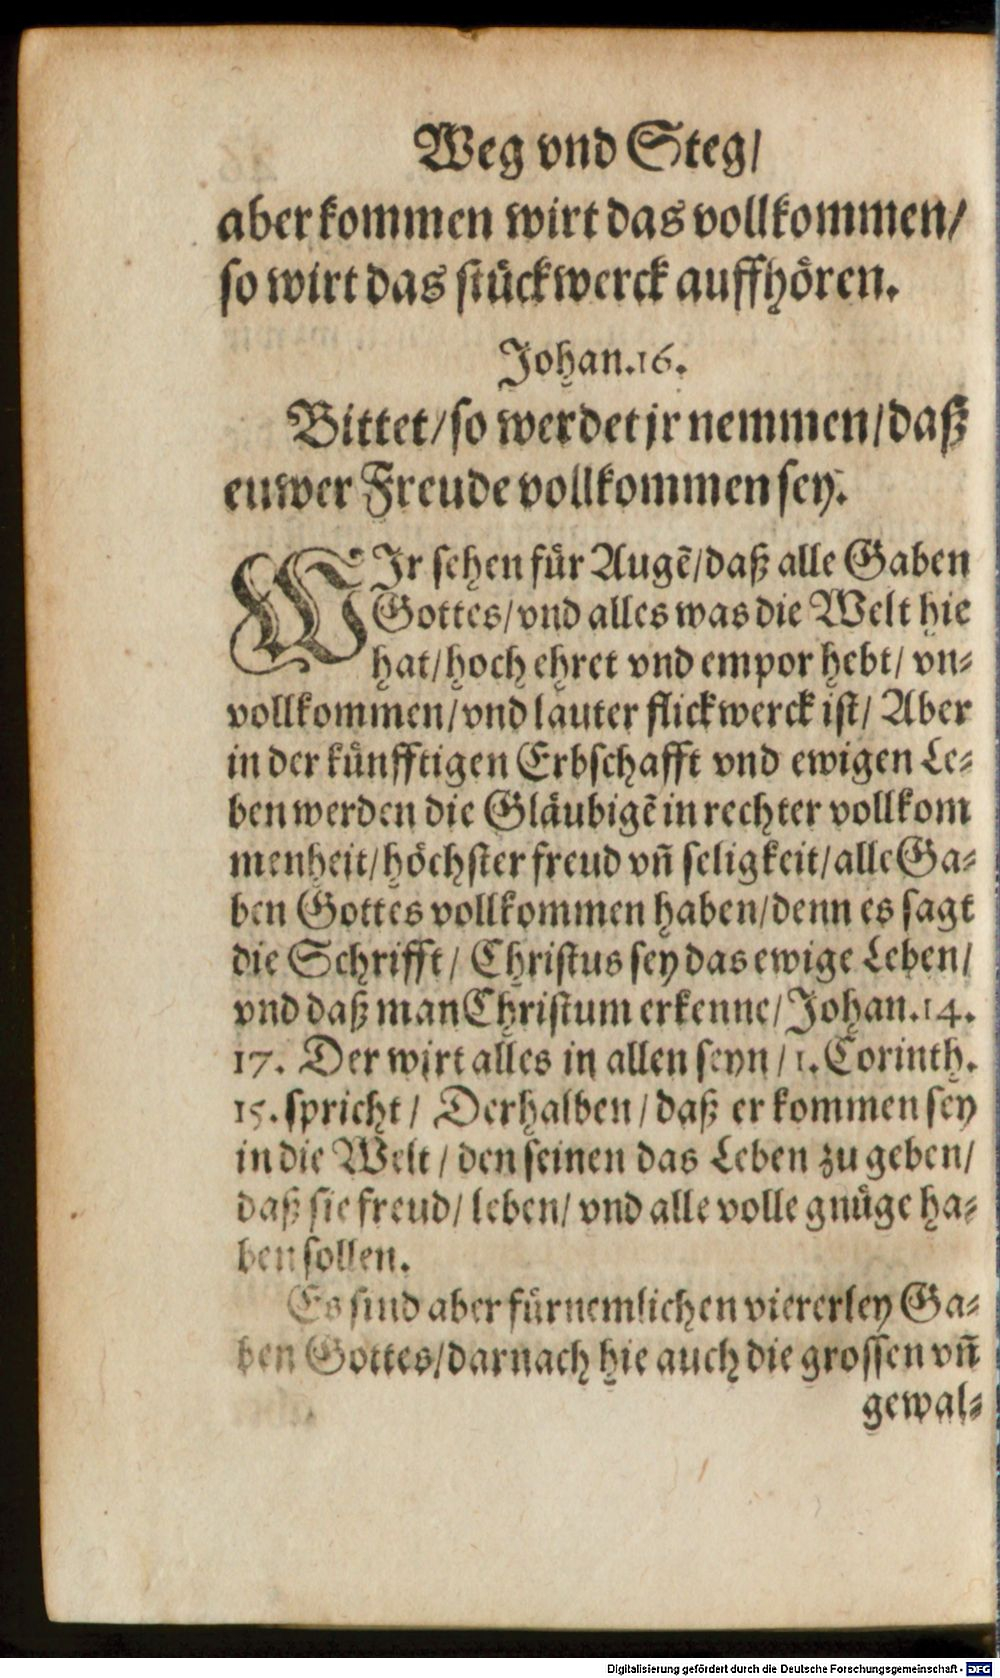 Weg vnd Steg/
aber kommen wirt das vollkommen/
so wirt das stückwerck auffhören.
Johan.16.
Bittet/so werdet jr nemmen/daß
euwer Freude vollkommen sey.
WIr sehen für Augẽ/daß alle Gaben
Gottes/vnd alles was die Welt hie
hat/hoch ehret vnd empor hebt/ vn-
vollkommen/vnd lauter flickwerck ist/ Aber
in der künfftigen Erbschafft vnd ewigen Le-
ben werden die Gläubigẽ in rechter vollkom
menheit/höchster freud vñ seligkeit/alle Ga-
ben Gottes vollkommen haben/denn es sagt
die Schrifft/ Christus sey das ewige Leben/
vnd daß man Christum erkenne/Johan.14.
17. Der wirt alles in allen seyn/1. Corinth.
15. spricht/ Derhalben/daß er kommen sey
in die Welt/den seinen das Leben zu geben/
daß sie freud/leben/vnd alle volle gnüge ha-
ben sollen.
Es sind aber fürnemlichen viererley Ga-
ben Gottes/darnach hie auch die grossen vñ
gewal-
Digitalisierung gefördert durch die Deutsche Forschungsgemeinschaft - DFG